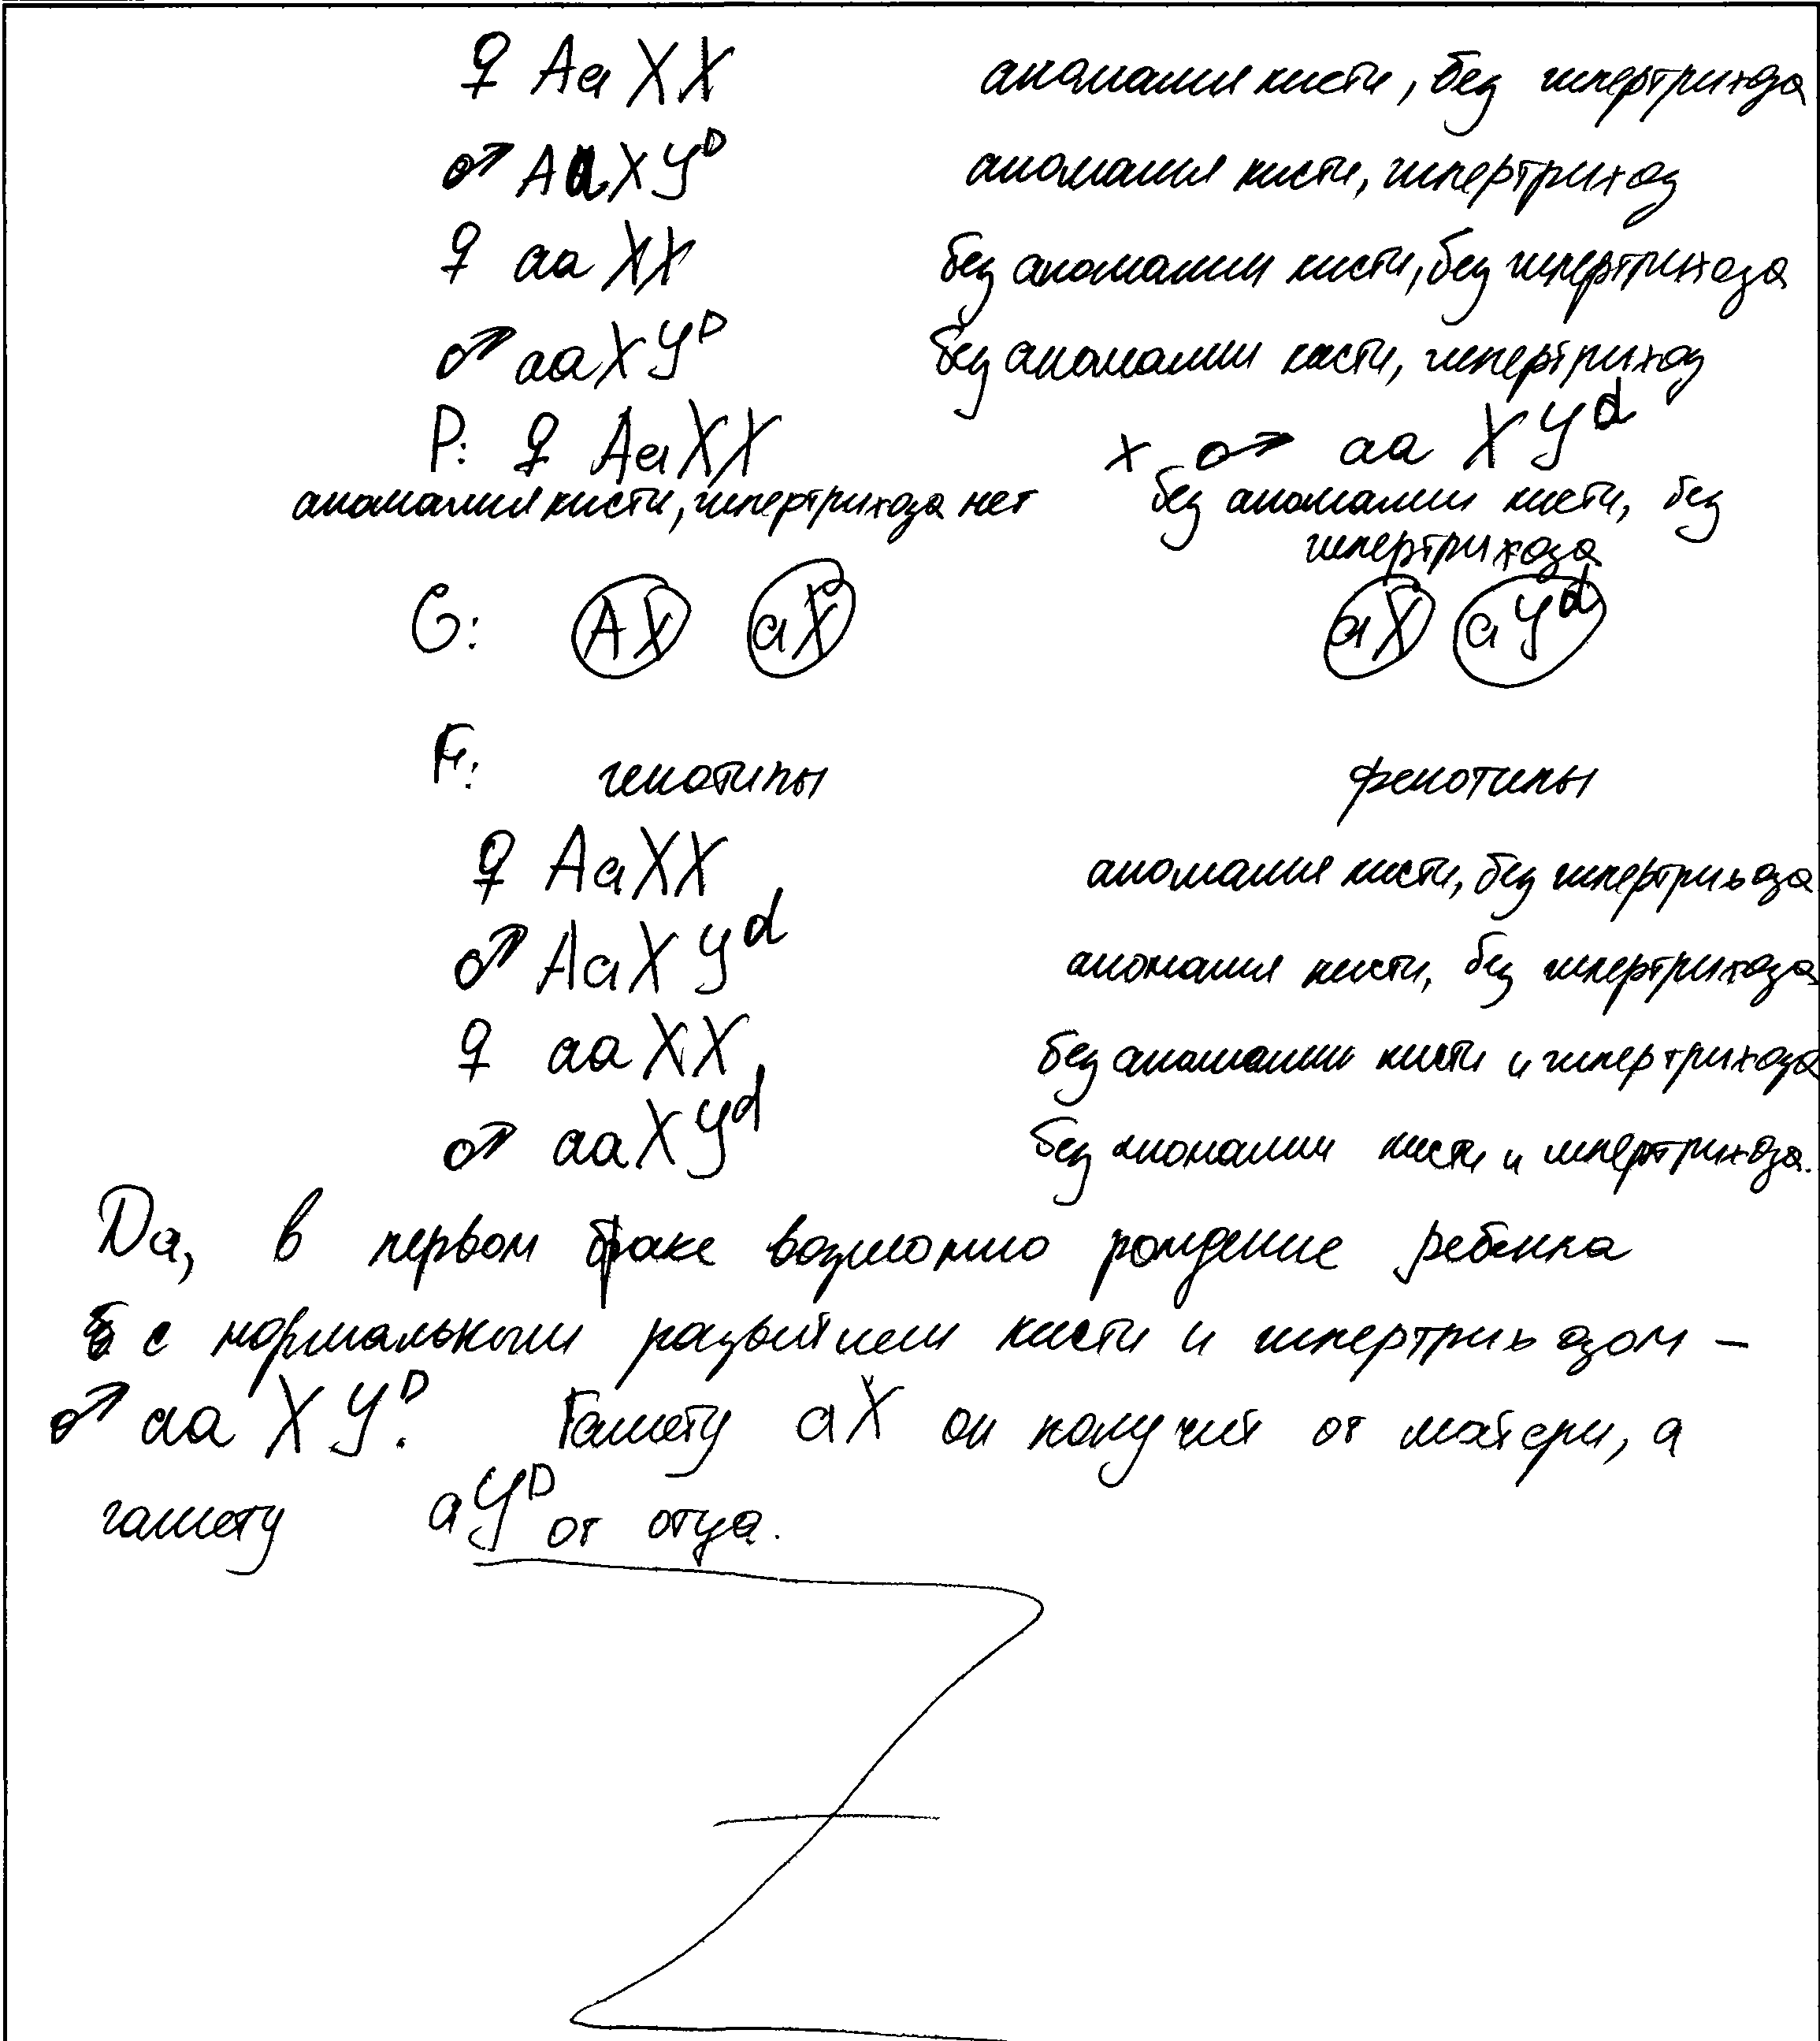 ♀ Aa XX аномалия кисти, без гипертрихоза
♂ Aa XY^D аномалия кисти, гипертрихоз
♀ aa XX без аномалии кисти, без гипертрихоза
♂ aa XY^D без аномалии кисти, гипертрихоз
P: ♀ Aa XX x ♂ aa XY^d
аномалия кисти, гипертрихоза нет без аномалии кисти, без
гипертрихоза
G: AX aX aX aY^d
F: генотипы фенотипы
♀ Aa XX аномалия кисти, без гипертрихоза
♂ Aa XY^d аномалия кисти, без гипертрихоза
♀ aa XX без аномалии кисти и гипертрихоза
♂ aa XY^d без аномалии кисти и гипертрихоза.
Да, в первом браке возможно рождение ребенка
с нормальным развитием кисти и гипертрихозом –
♂ aa XY^D. Гамету aX он получит от матери, а
гамету aY^D от отца.